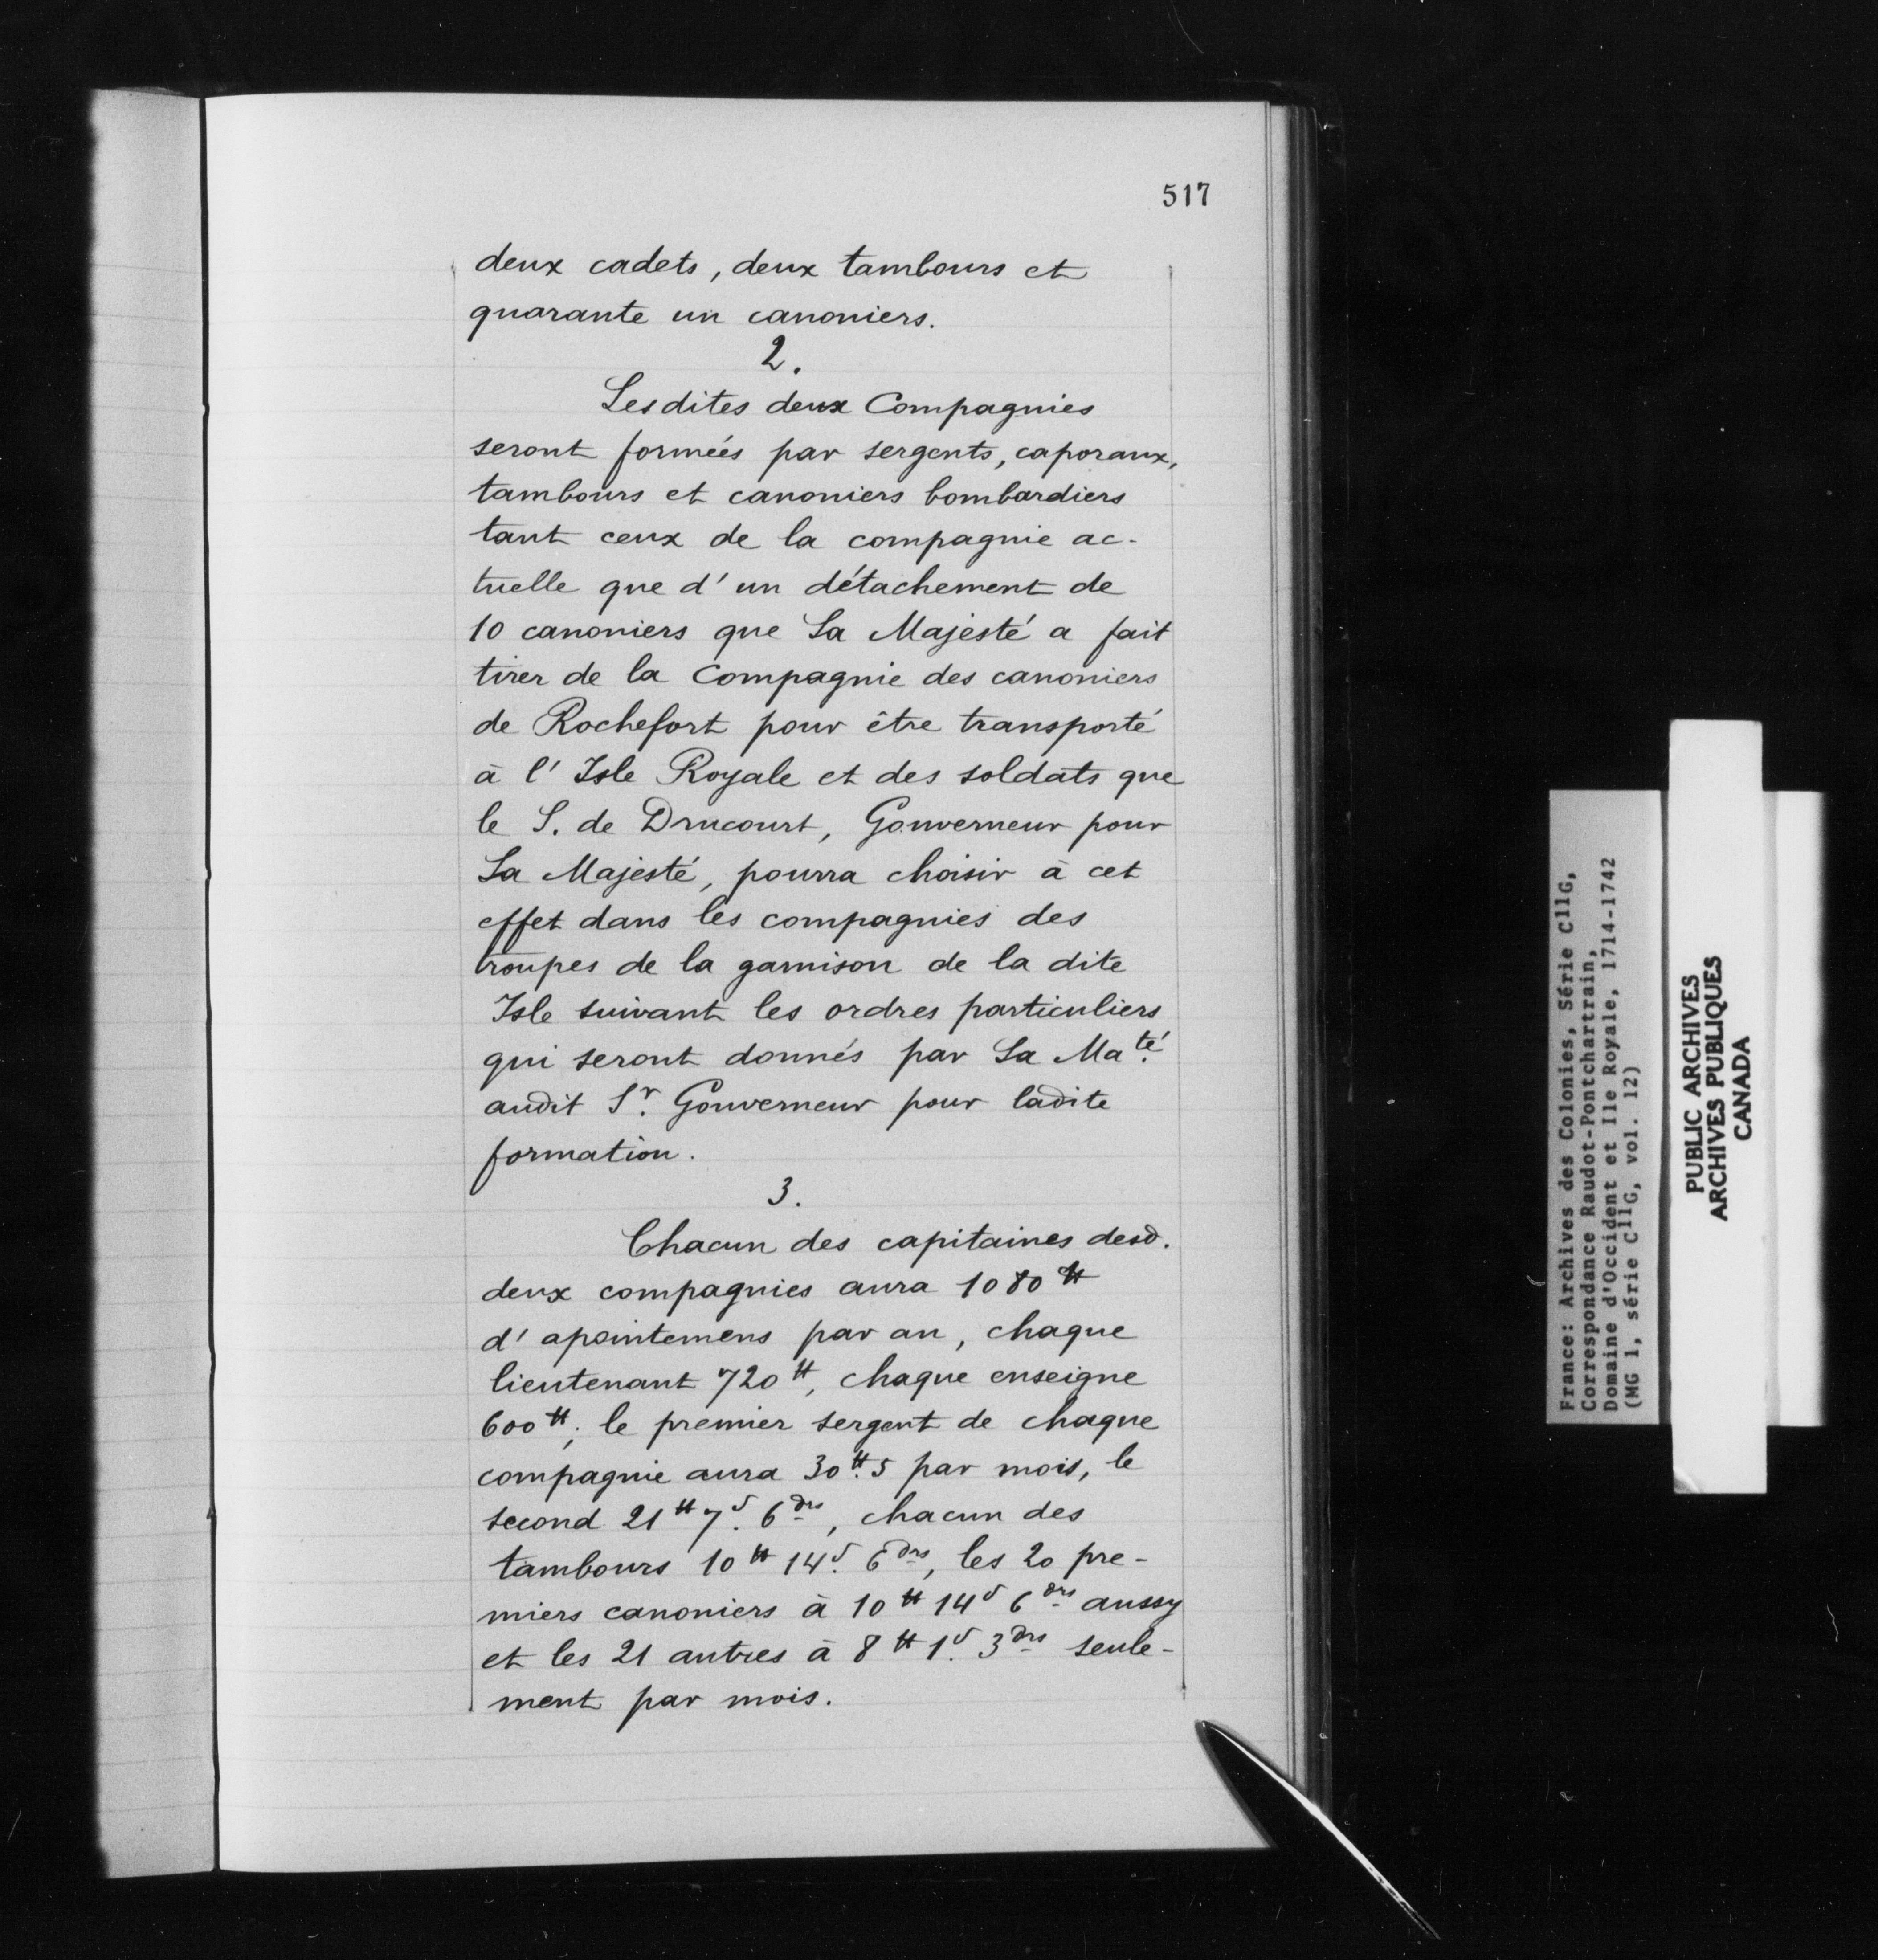 517
deux cadets, deux tambours et
quarante un canoniers.
2.
Lesdites deux Compagnies
seront formées par sergents, caporaux,
tambours et canoniers bombardiers
tant ceux de la compagnie ac-
tuelle que d'un détachement de
10 canoniers que Sa Majesté a fait
tirer de la Compagnie des canoniers
de Rochefort pour être transporté
à l'Isle Royale et des soldats que
le S. de Drucourt, Gouverneur pour
Sa Majesté, pourra choisir à cet
effet dans les compagnies des
troupes de la garnison de la dite
Isle suivant les ordres particuliers
qui seront donnés par Sa Ma.té
audit S.r Gouverneur pour ladite
formation.
3.
Chacun des capitaines desd.
deux compagnies aura 1080 ₶
d'apointemens par an, chaque
lieutenant 720 ₶, chaque enseigne
600 ₶; le premier sergent de chaque
compagnie aura 30 ₶. 5 par mois, le
second 21 ₶ 7.s 6 drs, chacun des
tambours 10 ₶ 14.s 6 drs, les 20 pre-
miers canoniers à 10 ₶ 14 s 6 drs aussy
et les 21 autres à 8 ₶ 1.s 3 drs seule-
ment par mois.
France: Archives des Colonies, Série C11G,
Correspondance Raudot-Pontchartrain,
Domaine d'Occident et Ile Royale, 1714-1742
(MG 1, série C11G, vol. 12)
PUBLIC ARCHIVES
ARCHIVES PUBLIQUES
CANADA